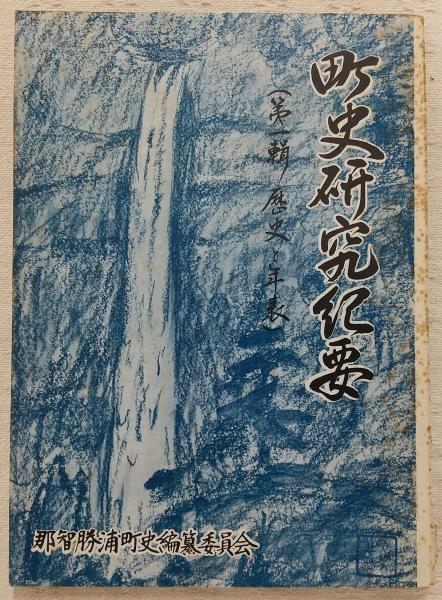 町史研究紀要
(第一輯 歴史と年表)
那智勝浦町史編纂委員会